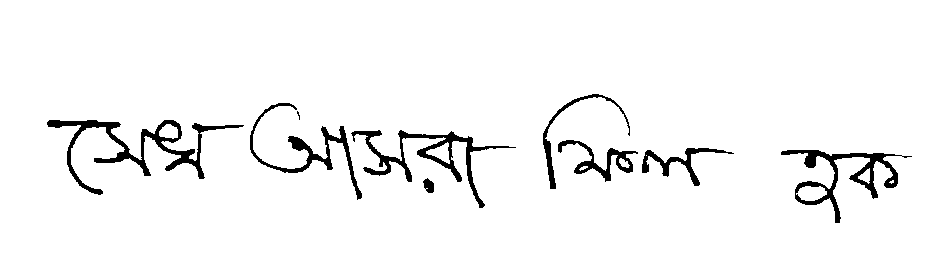 শেখ আসরা মিল হক